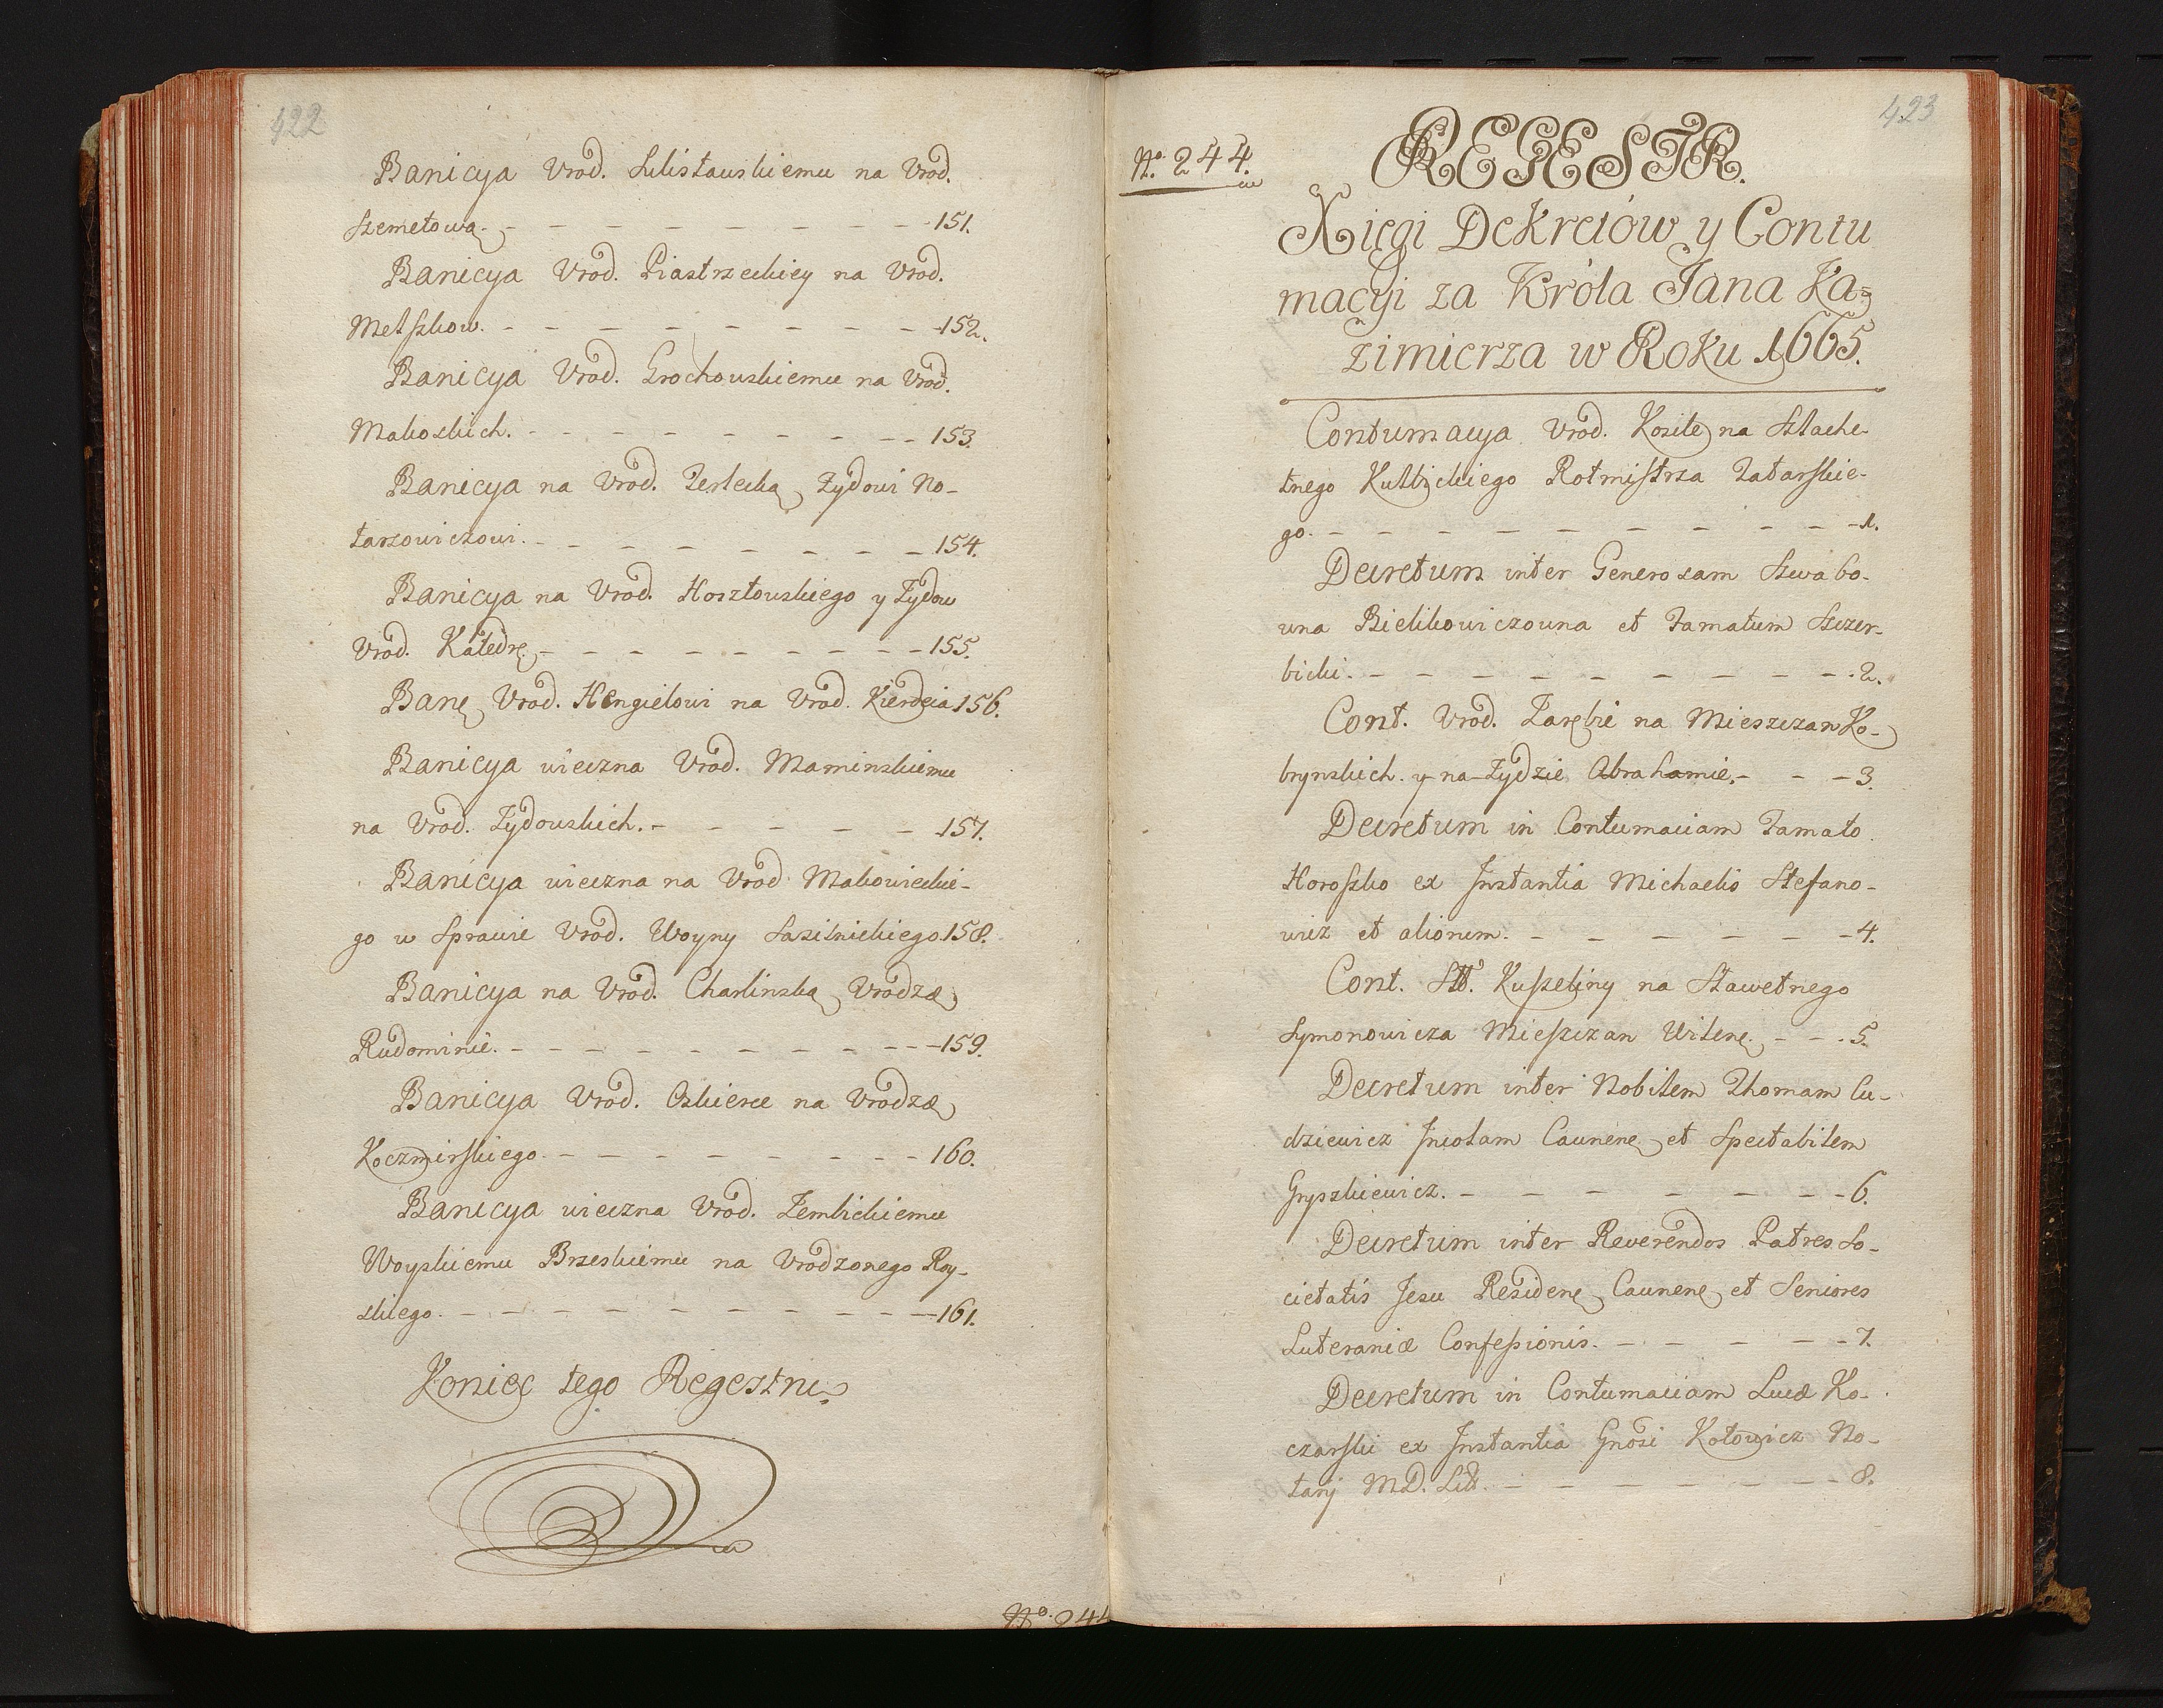 422
Banicya Vrod. Sulistauskiemu na Vrod.
Szemetową. - - - - - - - - - 151.
Banicya Vrod. Piastrzeckiey na Vrod.
Metszkow. - - - - - - - - - 152.
Banicya Vrod. Grochouskiemu na Vrod.
Makoskich. - - - - - - - - - 153.
Banicya na Vrod. Terlecką Żydowi No-
tarzowiczowi. - - - - - - - - 154.
Banicya na Vrod. Hosztouskiego y Żydow
Vrod. Katedrę - - - - - - - - - 155.
Banę Vrod. Hengielowi na Vrod. Kierdeia 156.
Banicya wieczna Vrod. Maminskiemu
na Vrod. Żydouskich. - - - - - - 157.
Banicya wieczna na Vrod. Makowieckie-
go w Sprawie Vrod. Woyny Jasitnickiego. 158.
Banicya na Vrod. Charlinską Vrodzæ
Rudominie. - - - - - - - - - 159.
Banicya Vrod. Oskierce na Vrodzæ
Koczmirskiego. - - - - - - - - 160.
Banicya wieczna Vrod. Zembickiemu
Woyskiemu Brzeskiemu na Vrodzonego Roy-
skiego. - - - - - - - - - - - 161.
Koniec tego Regestru
No. 244
423
No. 244.
REGESTR.
Xięgi Dekretów y Contu
macyi za Króla Jana Ka=
zimierza w Roku 1665.
Contumacya Vrod. Kozile na Szlache-
tnego Kulbickiego Rotmistrza Tatarskie-
go. - - - - - - - - - - 1.
Decretum inter Generosam Szwabo-
wna Bielikowiczowna et Famatum Szczer-
bicki. - - - - - - - - - 2.
Cont. Vrod. Zarębie na Mieszczan Ko-
brynskich. y na Żydzie Abrahamie. - - - 3.
Decretum in Contumaciam Famato
Horoszko ex Instantia Michaelis Stefano-
wicz et aliorum. - - - - - - - 4.
Cont. Szl. Kuszeliny na Sławetnego
Symonowicza Mieszczan Wilenę - - . 5.
Decretum inter Nobilem Thomam Cu-
dziewicz Incolam Caunenę et Spectabilem
Gryszkiewicz. - - - - - - - - 6.
Decretum inter Reverendos Patres So-
cietatis Jesu Residenę Caunenę et Seniores
Luteraniæ Confessionis. - - - - - - 7.
Decretum in Contumaciam Lucæ Ko-
czarski ex Instantia Gnosi Kotowicz No-
tarij M.D. Lit. - - - - - - - - 8.